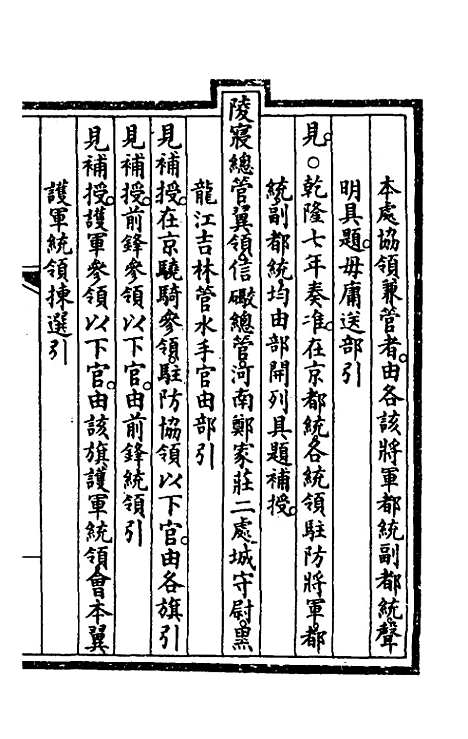 本處協領兼管者。由各該將軍都統副都統。聲
明具題。毋庸送部引
見。○乾隆七年奏准。在京都統。各統領。駐防將軍。都
統。副都統。均由部開列具題補授。
陵寢總管翼領。信礮總管。河南鄭家莊二處城守尉。黑
龍江吉林管水手官。由部引
見補授。在京驍騎參領。駐防協領以下官。由各旗引
見補授。前鋒參領以下官。由前鋒統領引
見補授。護軍參領以下官。由該旗護軍統領會本翼
護軍統領揀選引